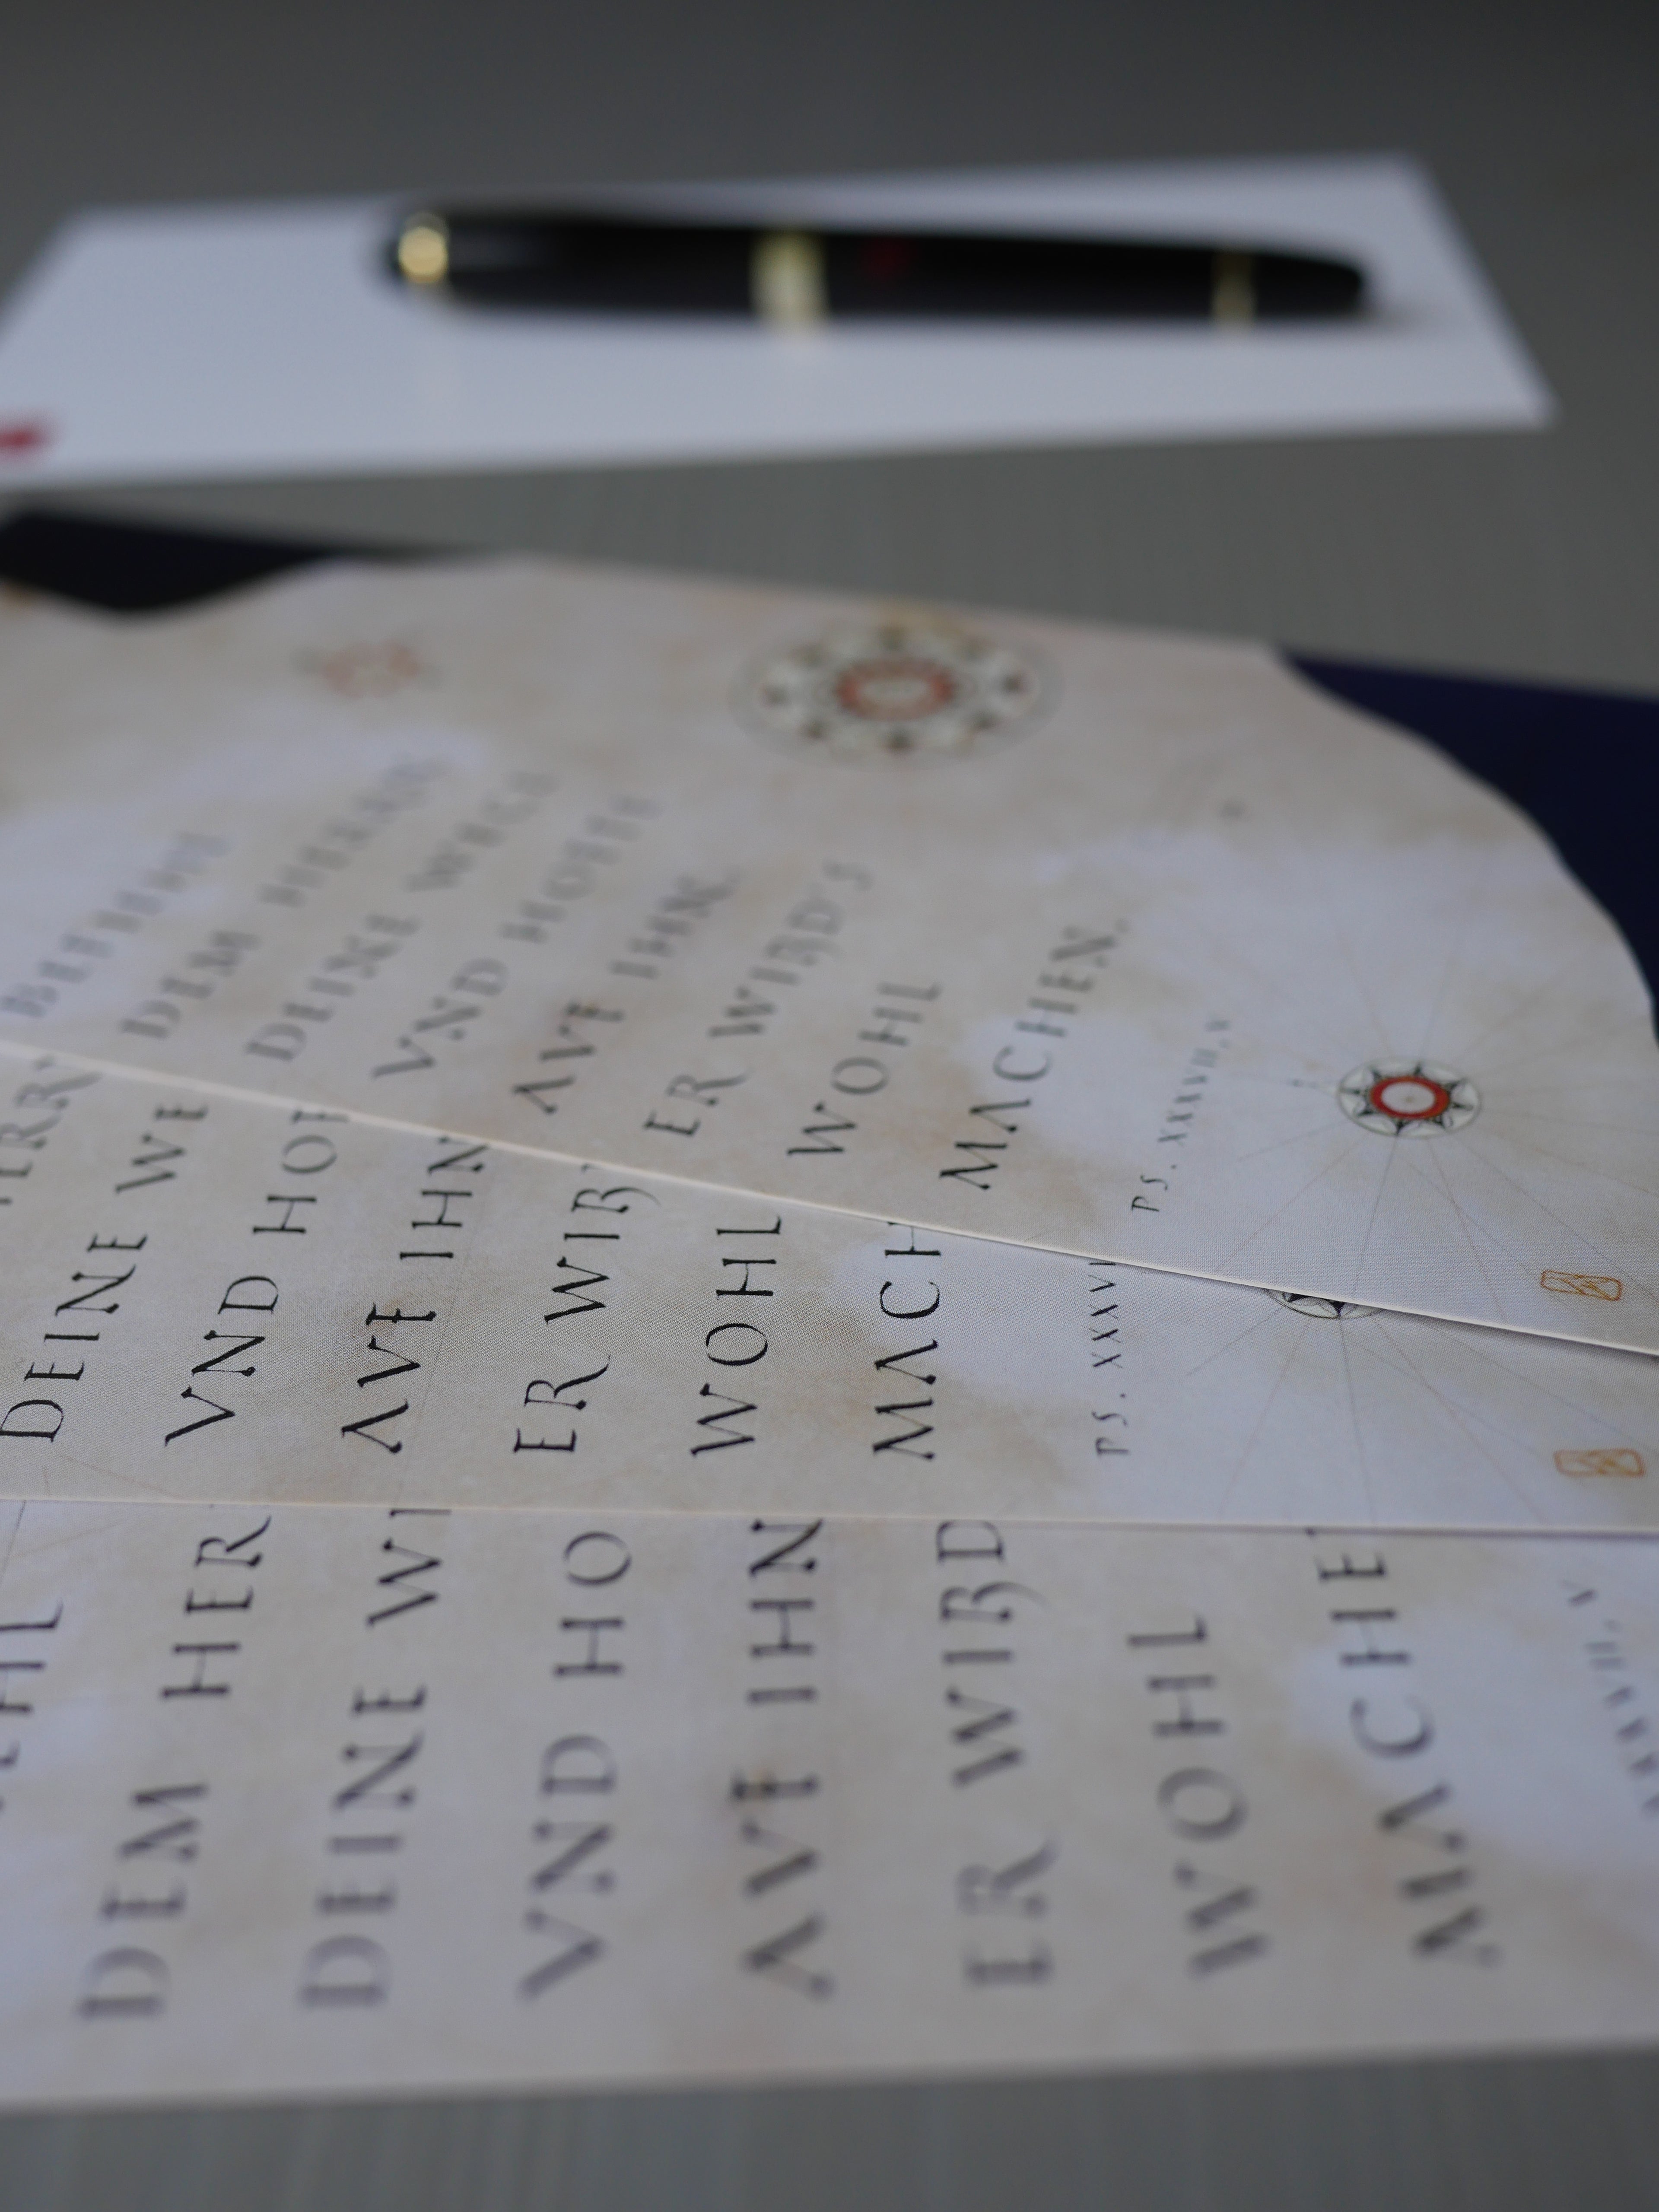 BEFIEHL
DEM HERRN
DEINE WEGE
VND HOFFE
AVF IHN.
ER WIRD'S
WOHL
MACHEN.
PS. XXXVII,V
HERR
DEINE WE
VND HOF
AVF IHN
ER WIR
WOHL
MACH
PS. XXXVI
EHL
DEM HER
DEINE W
VND HO
AVF IHN
ER WIRD
WOHL
MACHE